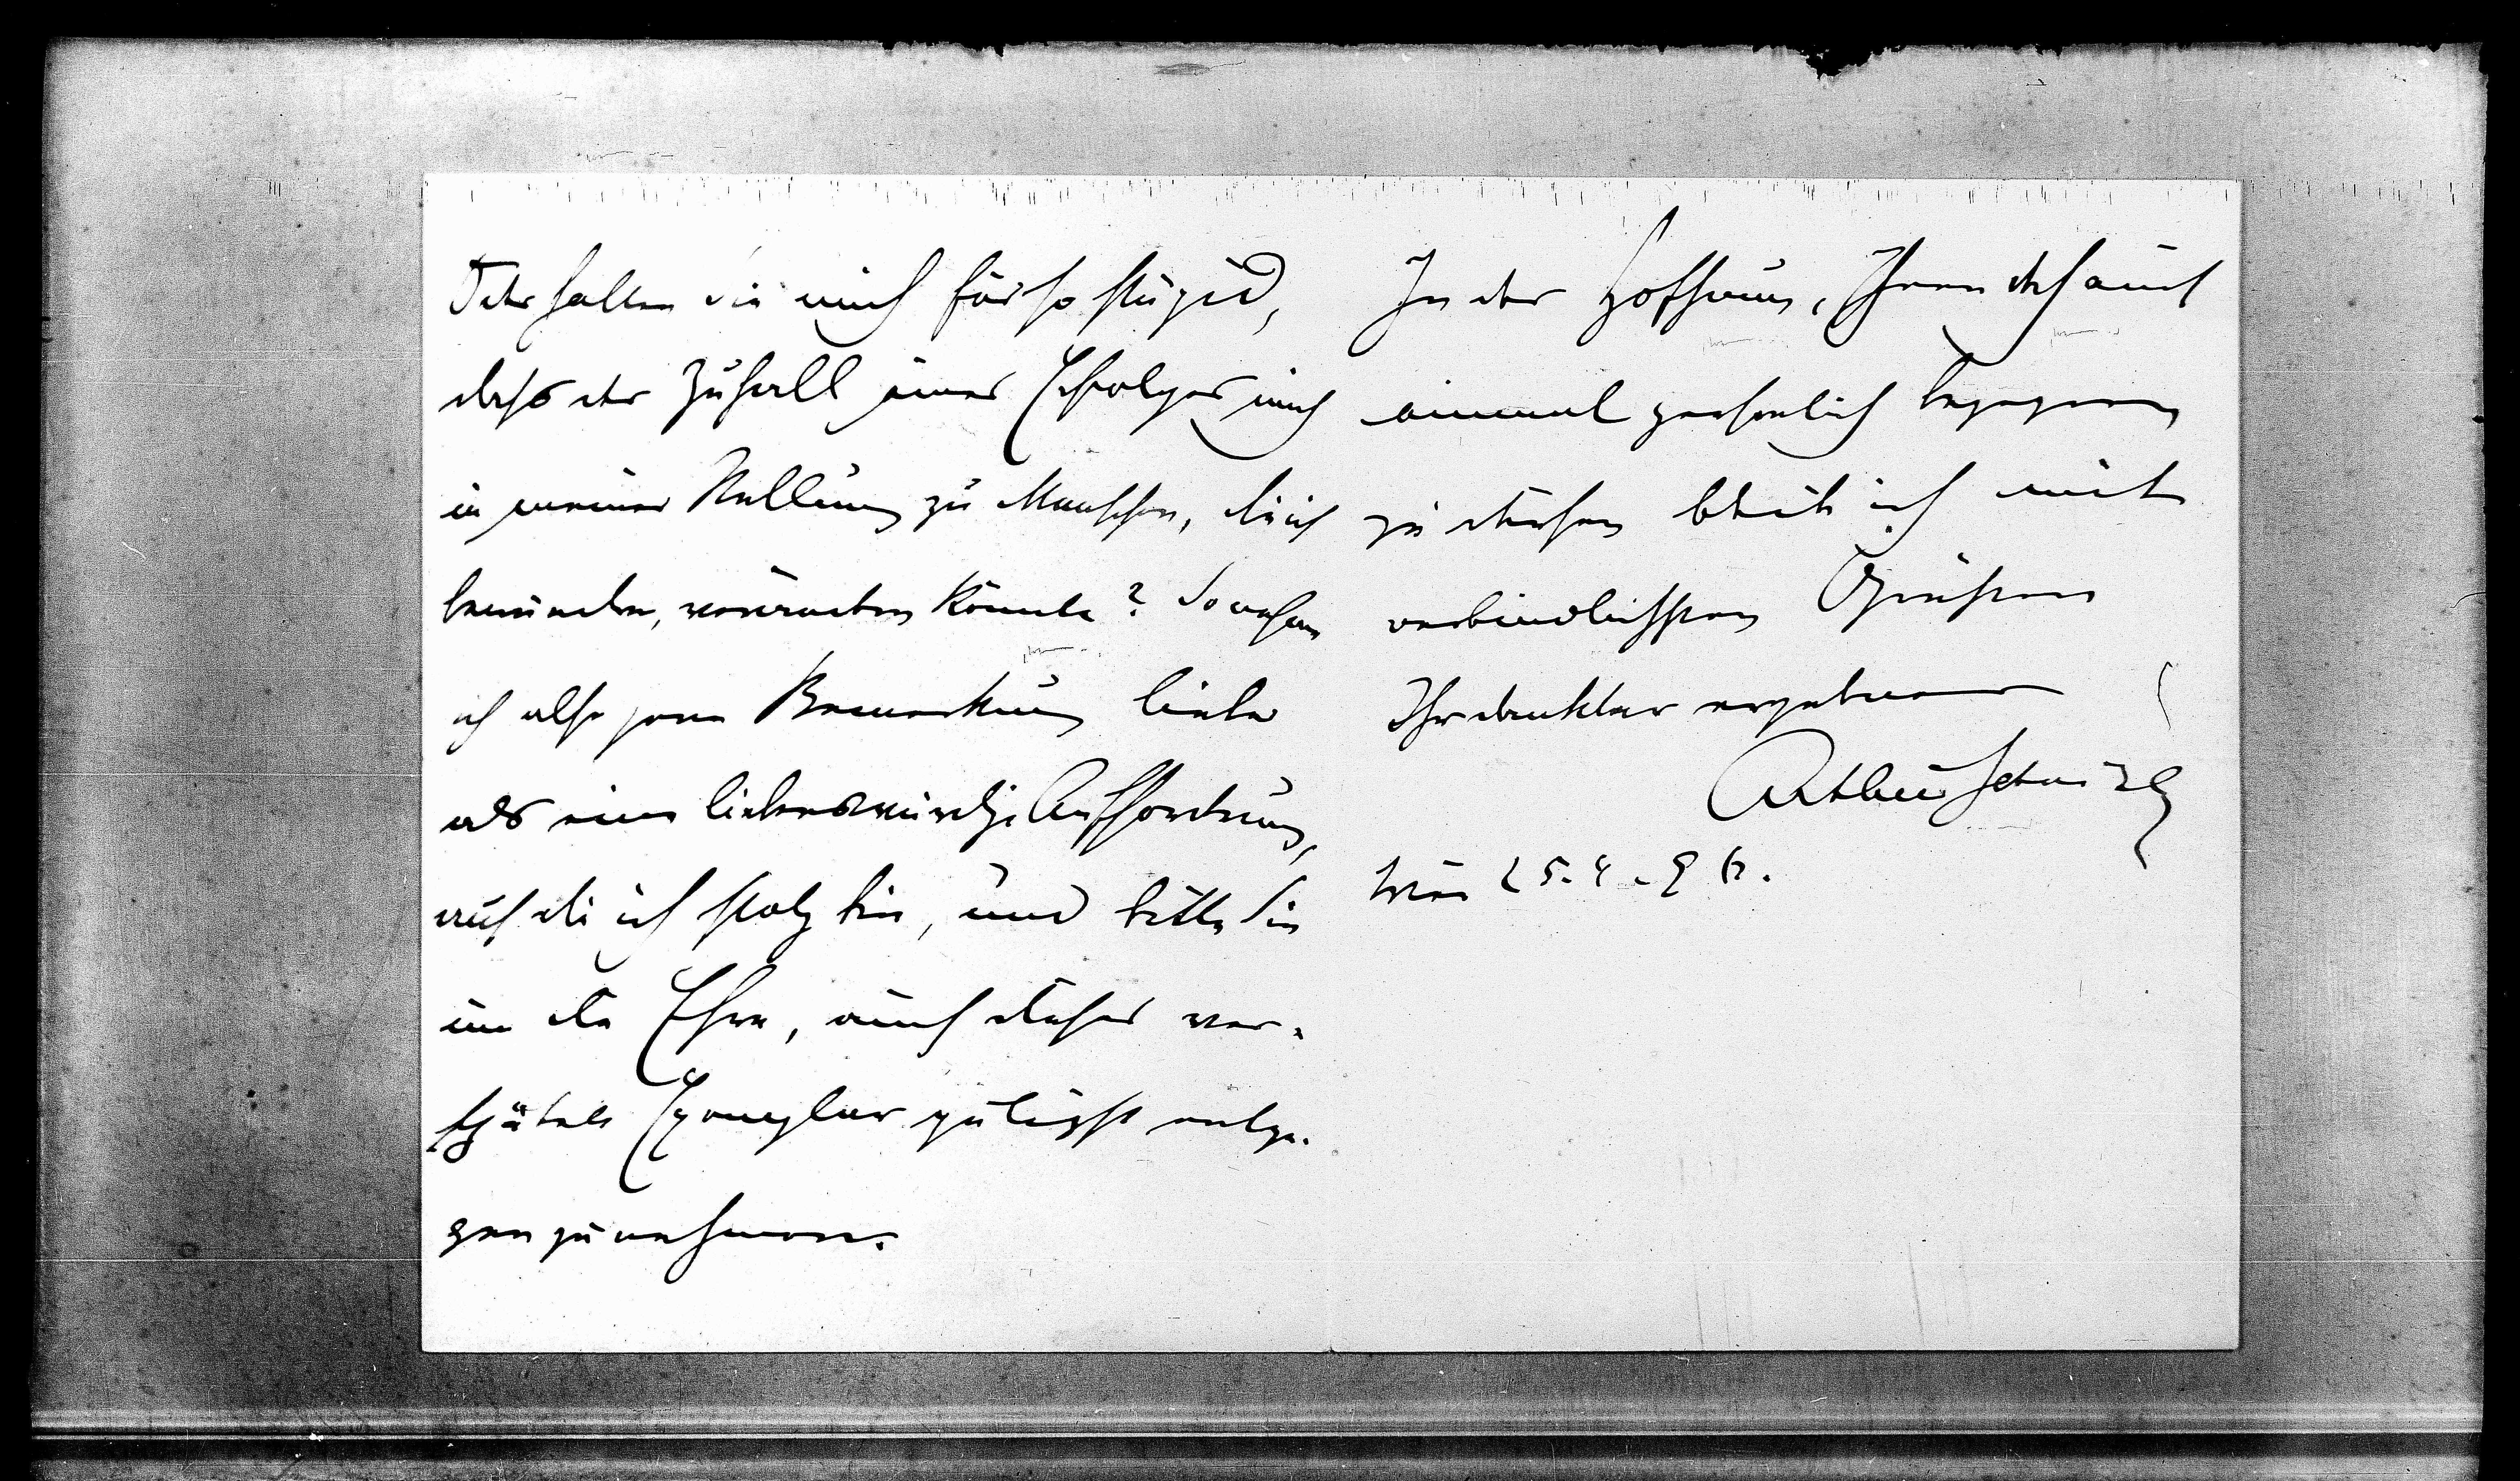 Oder halten Sie mich für so stupid,
daß der Zufall eines Erfolges mich
in meiner Stellung zu Menschen, die ich
bewundre, verwirren könnte? So nehme
ich also jene Bemerkung lieber
als eine liebenswürdige Aufforderung,
auf die ich stolz bin, und bitte Sie
um die Ehre, auch dieses ver-
spätete Exemplar gütigst entge-
gen zu nehmen.
In der Hoffnung, Ihnen doch auch
einmal persönlich begegnen
zu dürfen bleibe ich mit
verbindlichsten Grüßen
Ihr dankbar ergebener
Arthur Schnitzler
Wien 25. 4. 96.